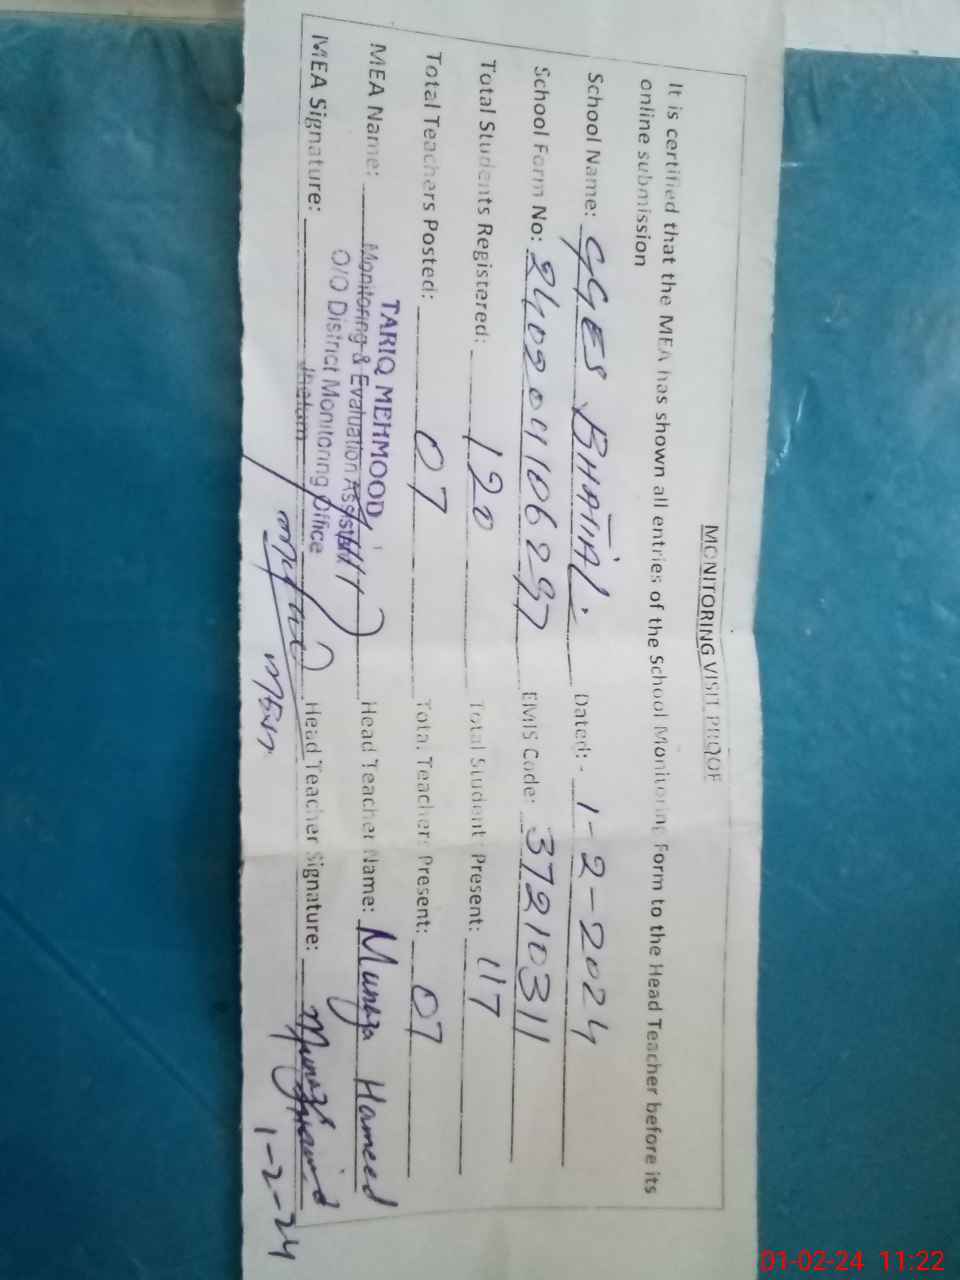 MONITORING VISIT PROOF
It is certified that the MEA has shown all entries of the School Monitoring Form to the Head Teacher before its
online submission
School Name: GGES BHATIAL. Dated: - 1-2-2024
School Form No: EMIS Code: 37210311
Total Students Registered: 120 Total Student Present: 117
Total Teachers Posted: 07 Total Teachers Present: 07
TARIQ MEHMOOD
MEA Name: Monitoring & Evaluation Assistant Head Teacher Name: Munaza Hameed
O/O District Monitoring Office
Jhelum
MEA Signature: Head Teacher Signature:
1-2-24
01-02-24 11:22